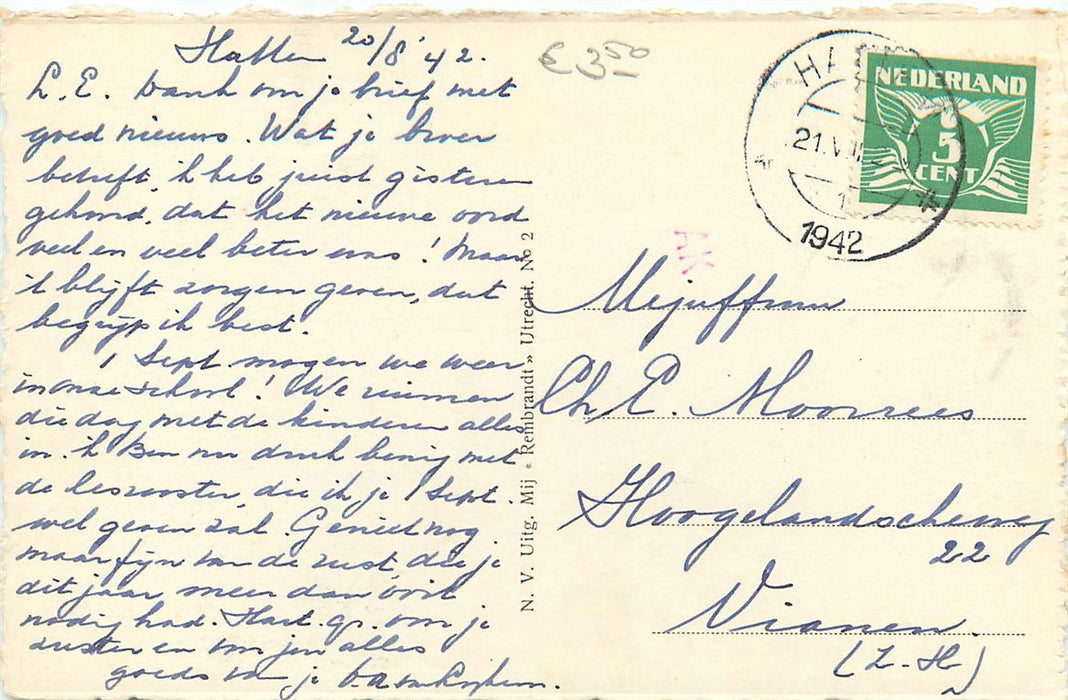 Hattem 20/8 '42.
L. E. Dank om je brief met
goed nieuws. Wat je broer
betreft, ik heb juist gisteren
gehoord, dat het nieuwe oord
veel en veel beter was! Maar
't blijft zorgen geven, dat
begrijp ik best.
1 Sept. mogen we weer
in onze school! We ruimen
die dag met de kinderen alles
in. Ik ben nu druk bezig met
de lesrooster, die ik je 1 Sept.
wel geven zal. Geniet nog
maar fijn van de rust die je
dit jaar meer dan ooit
nodig had. Hart. gr. voor je
zuster en voor jou alles
goeds van je
€ 3.50
HA
21.VIII
1
1942
NEDERLAND
5
CENT
AK
N. V. Uitg. Mij « Rembrandt » Utrecht. No 2
Mejuffrouw
Ch E. Moorrees
Hoogelandscheweg
22
Vianen.
(Z-H)